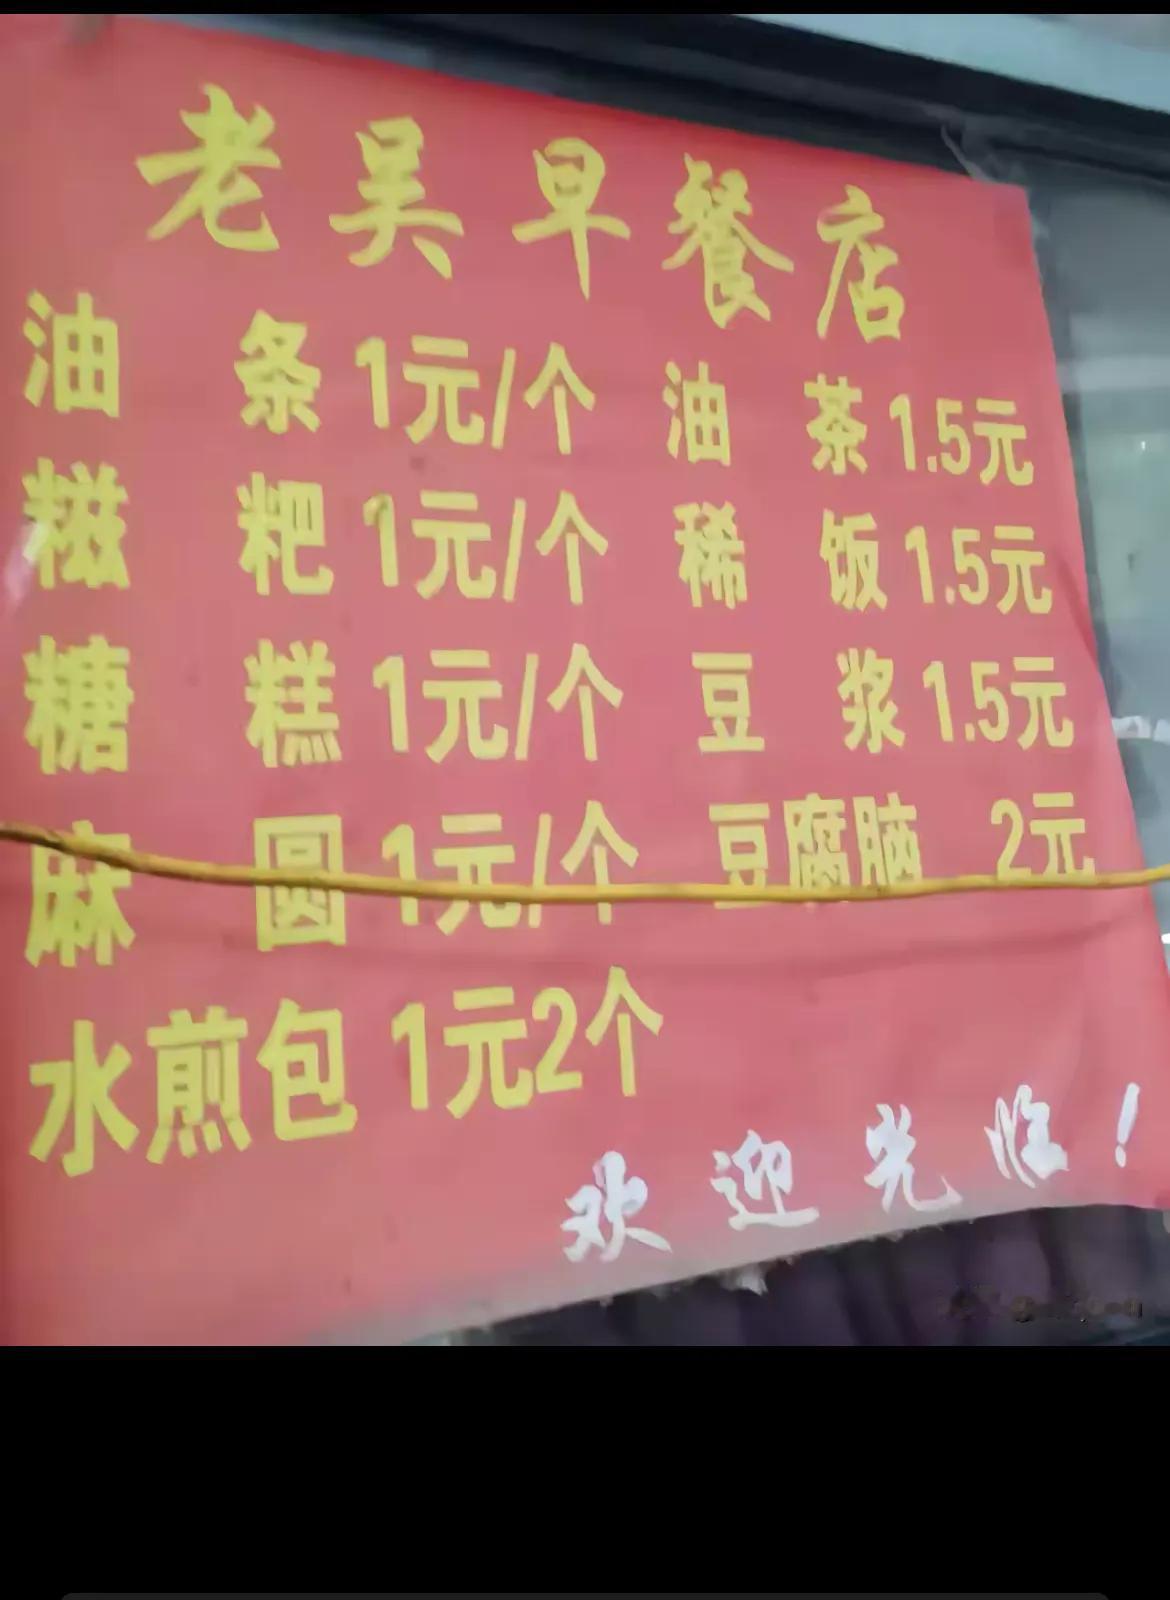 老吴早餐店
油条1元/个 油茶1.5元
糍粑1元/个 稀饭1.5元
糖糕1元/个 豆浆1.5元
麻圆1元/个 豆腐脑 2元
水煎包 1元2个
欢迎光临！